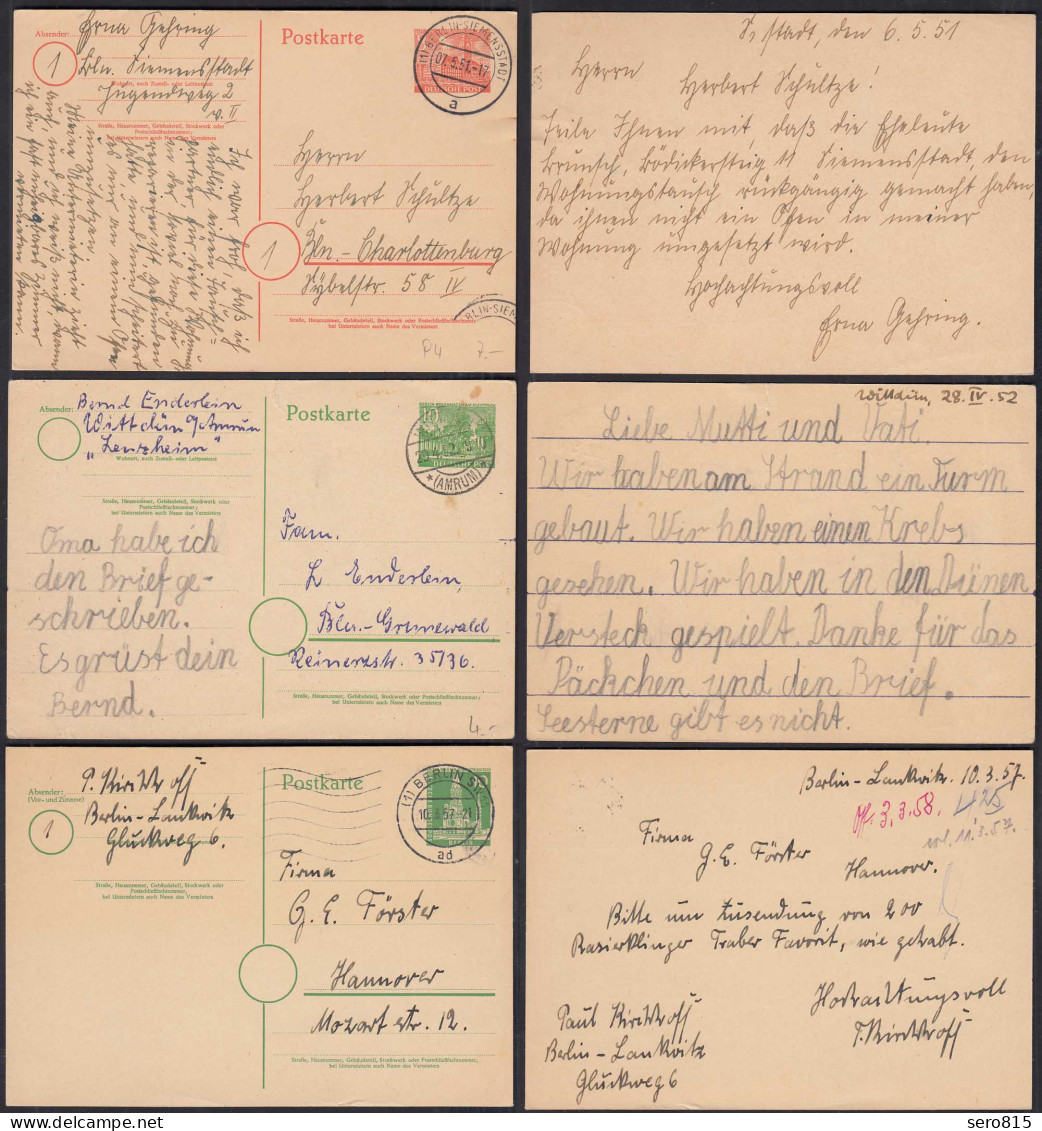 Absender:
Erna Gehring
Bln. Siemensstadt
Wohnort, auch Zustell- oder Leitpostamt
Jugendweg 2
v. II
Straße, Hausnummer, Gebäudeteil, Stockwerk oder
Postschließfachnummer;
bei Untermietern auch Name des Vermieters
1
Postkarte
(1) BERLIN-SIEMENSSTADT
07.5.51.-17
a
DEUTSCHE POST
Ich war froh, daß ich
endlich einen Tausch=
partner für diese Wohnung
an der Hand
hatte, und nun scheitert
es nur an einem Ofen
umzusetzen.
Meine Untermieterin zieht
auch, und ich weiß nicht, wann
ich ein
vermieten kann.
Herrn
Herbert Schultze
1
Bln.-Charlottenburg
Sybelstr. 58 IV
Straße, Hausnummer, Gebäudeteil, Stockwerk oder Postschließfachnummer;
bei Untermietern auch Name des Vermieters
RLIN-SIEM
P4 7.-
S. stadt, den 6.5.51
Herrn Herbert Schultze!
Teile Ihnen mit, daß die Eheleute
Brunsch, Bödickersteig 11 Siemensstadt, den
Wohnungstausch rückgängig gemacht haben,
da ihnen nicht ein Ofen in meiner
Wohnung umgesetzt wird.
Hochachtungsvoll
Erna Gehring.
Absender:
Bernd Enderlein
Wittdün a/Amrum
"Lenzheim"
Wohnort, auch Zustell- oder Leitpostamt
Straße, Hausnummer, Gebäudeteil, Stockwerk oder
Postschließfachnummer;
bei Untermietern auch Name des Vermieters
Postkarte
10
DEUTSCHE POST
*(AMRUM)
Oma habe ich
den Brief ge-
schrieben.
Es grüst dein
Bernd.
Fam.
L Enderlein,
Bln.-Grunewald
Reinerzstr. 35/36.
Straße, Hausnummer, Gebäudeteil, Stockwerk oder Postschließfachnummer;
bei Untermietern auch Name des Vermieters
4.-
Wittdün, 28.IV.52
Liebe Mutti und Vati.
Wir haben am Strand ein Turm
gebaut. Wir haben einen Krebs
gesehen. Wir haben in den Dünen
Versteck gespielt. Danke für das
Päckchen und den Brief.
Seesterne gibt es nicht.
Absender:
(Vor- und Zuname)
P. Kirchhoff
Berlin-Lankwitz
1
Gluckweg 6.
Straße, Hausnummer, Gebäudeteil, Stockwerk oder
Postschließfachnummer;
bei Untermietern auch Name des Vermieters
Postkarte
(1) BERLIN SW
10.3.57.-21
ad
BERLIN
Firma
G. E. Förster
Hannover
Mozart str. 12.
Straße, Hausnummer, Gebäudeteil, Stockwerk oder Postschließfachnummer;
bei Untermietern auch Name des Vermieters
Berlin-Lankwitz. 10.3.57.
Off. 3.3.58. 425
erl. 11.3.57.
Firma
G. E. Förster
Hannover.
Bitte um Zusendung von 200
Rasierklingen Traber Favorit, wie gehabt.
Hochachtungsvoll
P. Kirchhoff
Paul Kirchhoff
Berlin-Lankwitz
Gluckweg 6
sero815